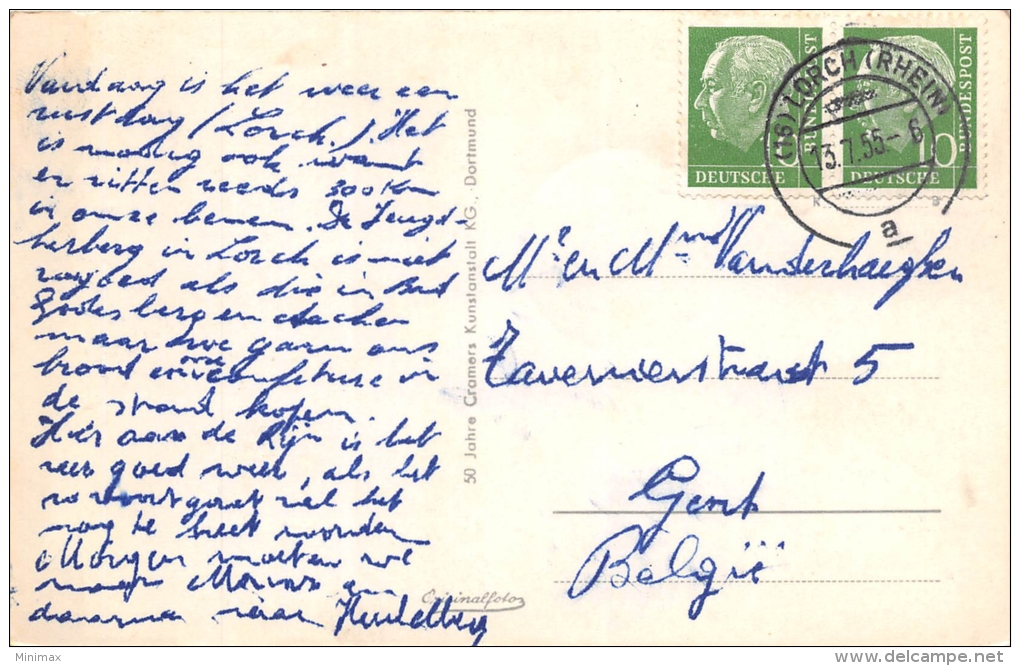 Vandaag is het weer een
rustdag (Lorch.) Het
is nodig ook want
er zitten reeds 300 Km
in onze benen. De Jeugd-
herberg in Lorch is niet
zo goed als die in Bad
Godesberg en Aachen
maar we gaan ons
brood en onze confituur in
de strand kopen.
Hier aan de Rijn is het
zeer goed weer, als het
zo voortgaat zal het
nog te heet worden
Morgen moeten we
naar Mainz en
daarna naar Heidelberg
50 Jahre Cramers Kunstanstalt KG., Dortmund
Originalfoto
BUNDESPOST
DEUTSCHE
10 BUNDESPOST
DEUTSCHE
(16) LORCH (RHEIN)
13.7.55-6
a
Mr en Mme Vanderhaeghen
Tavernierstraat 5
Gent
België
Minimax
delcampe.net